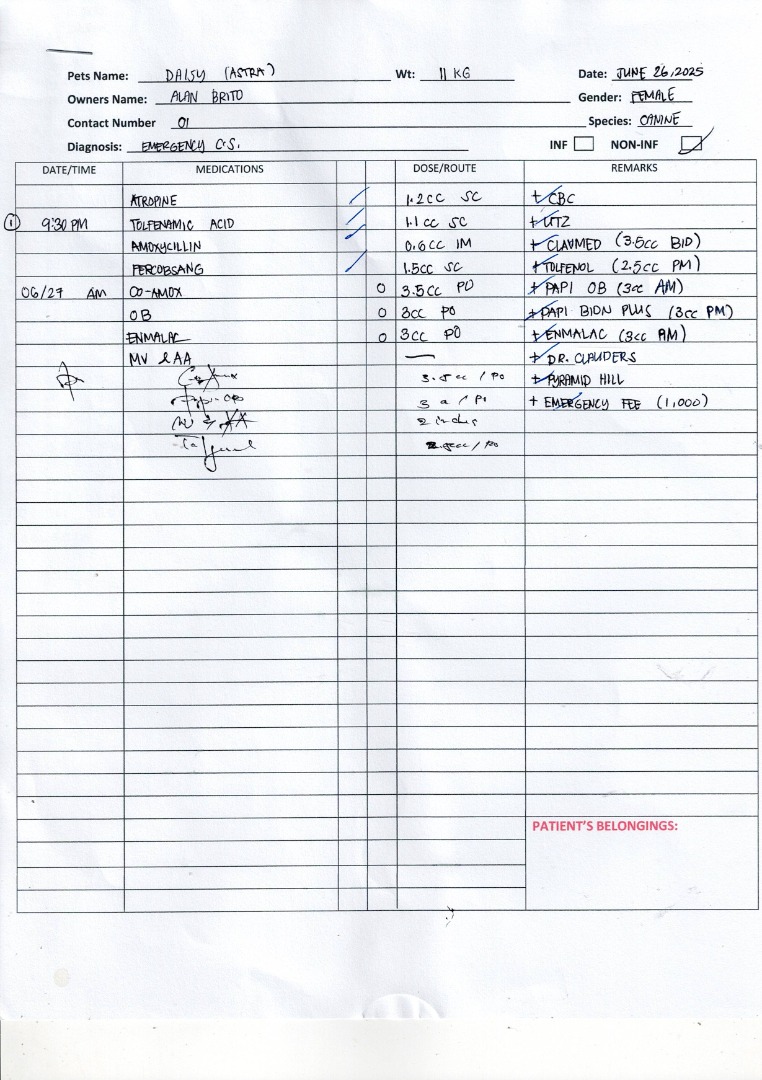 Pets Name: DAISY (ASTRA) Wt: 11 KG Date: JUNE 26, 2025
Owners Name: ALAN BRITO Gender: FEMALE
Contact Number 01 Species: CANINE
Diagnosis: EMERGENCY C.S. INF NON-INF
DATE/TIME MEDICATIONS DOSE/ROUTE REMARKS
ATROPINE 1.2cc SC + CBC
1 9:30 PM TOLFENAMIC ACID 1.1 cc SC + UTZ
AMOXYCILLIN 0.6cc IM + CLAVMED (3.5cc BID)
PERCOBSANG 1.5cc SC + TOLFENOL (2.5cc PM)
06/27 AM CO-AMOX 0 3.5cc PO + PAPI OB (3cc AM)
OB 0 3cc PO + PAPI BION PLUS (3cc PM)
ENMALAC 0 3cc PO + ENMALAC (3cc AM)
MV & AA — + DR. CLAUDERS
3.5cc / PO + PYRAMID HILL
+ EMERGENCY FEE (1,000)
PATIENT'S BELONGINGS: